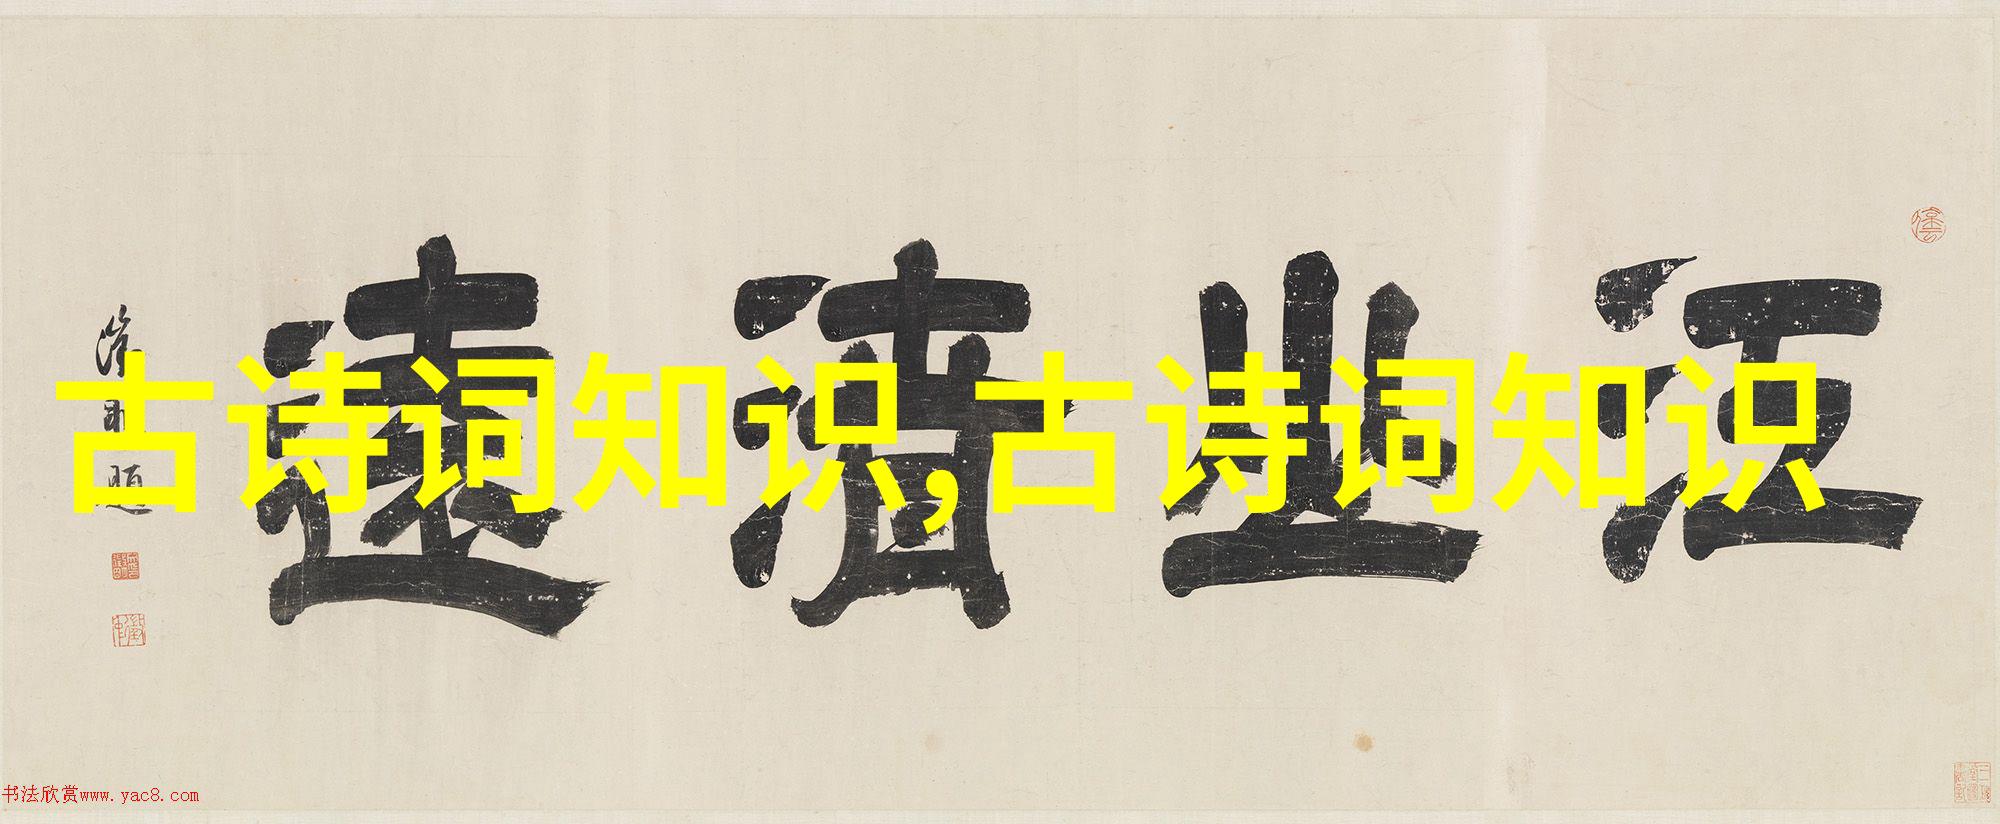 古诗词知识,古诗词知识
江山清遠
書法欣赏www.yac8.com